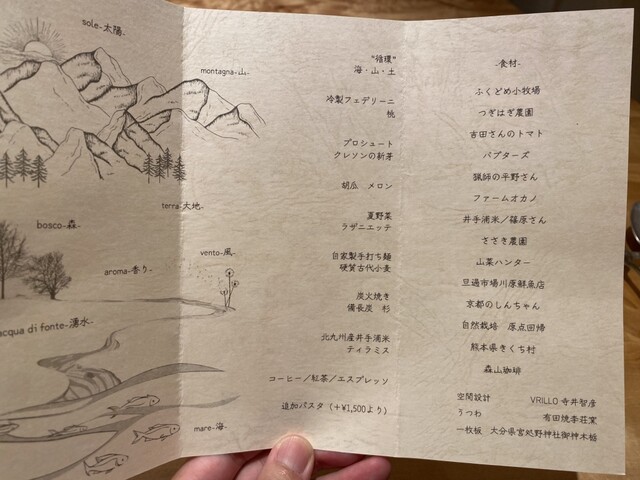 sole-太陽-
montagna-山-
terra-大地-
bosco-森-
vento-風-
aroma-香り-
acqua di fonte-湧水-
mare-海-
"循環"
海・山・土
冷製フェデリーニ
桃
プロシュート
クレソンの新芽
胡瓜　メロン
夏野菜
ラザニエッテ
自家製手打ち麺
硬質古代小麦
炭火焼き
備長炭　杉
北九州産井手浦米
ティラミス
コーヒー／紅茶／エスプレッソ
追加パスタ（＋¥1,500より）
-食材-
ふくどめ小牧場
つぎはぎ農園
吉田さんのトマト
バブターズ
猟師の平野さん
ファームオカノ
井手浦米／篠原さん
ささき農園
山菜ハンター
旦過市場川原鮮魚店
京都のしんちゃん
自然栽培　原点回帰
熊本県きくち村
森山珈琲
空間設計　VRILLO 寺井智彦
うつわ　有田焼李荘窯
一枚板　大分県宮処野神社御神木栃